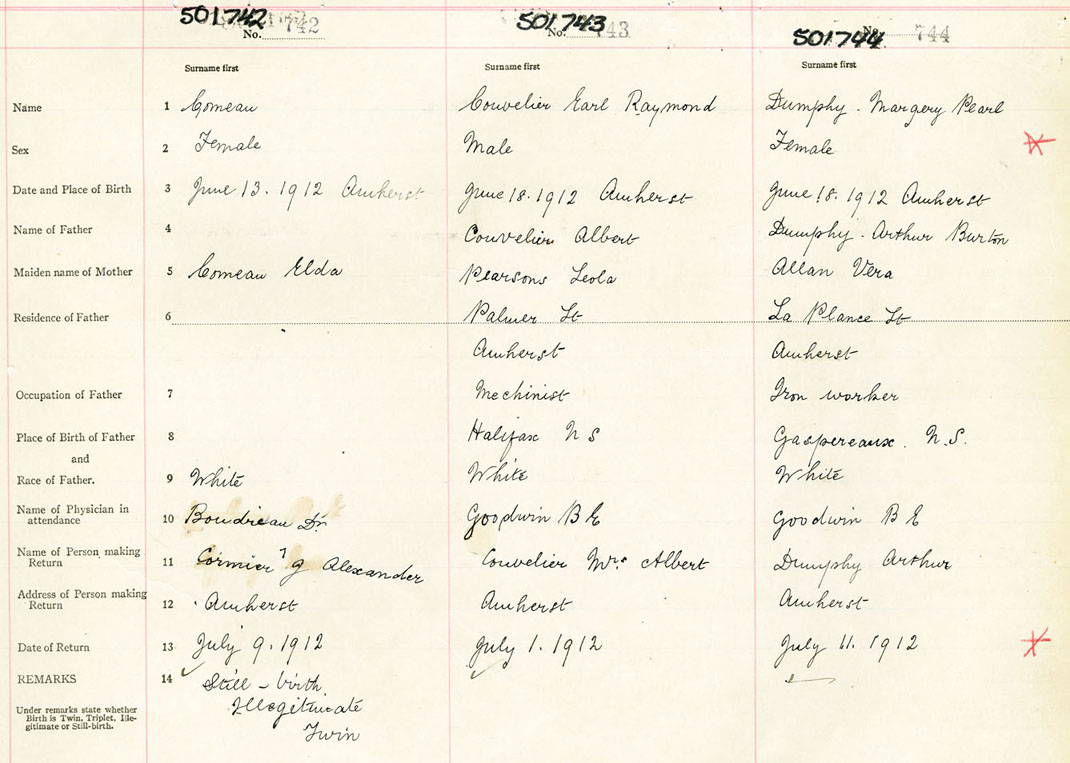 501742 No. 742 501743 No. 743 501744 No. 744
Surname first Surname first Surname first
Name 1 Comeau Couvelier Earl Raymond Dumphy. Margery Pearl
Sex 2 Female Male Female
Date and Place of Birth 3 June 13. 1912 Amherst June 18. 1912 Amherst June 18. 1912 Amherst
Name of Father 4 Couvelier Albert Dumphy. Arthur Burton
Maiden name of Mother 5 Comeau Elda Pearsons Leola Allan Vera
Residence of Father 6 Palmer St La Plance St
Amherst Amherst
Occupation of Father 7 Mechinist Iron worker
Place of Birth of Father 8 Halifax N S Gaspereaux. N.S.
and
Race of Father. 9 White White White
Name of Physician in
attendance 10 Boudreau Dr. Goodwin B E Goodwin B E
Name of Person making
Return 11 Cormier Alexander Couvelier Mrs Albert Dumphy Arthur
Address of Person making
Return 12 Amherst Amherst Amherst
Date of Return 13 July 9. 1912 July 1. 1912 July 11. 1912
REMARKS 14 Still-birth
Illegitimate
Twin
Under remarks state whether
Birth is Twin, Triplet, Ille-
gitimate or Still-birth.